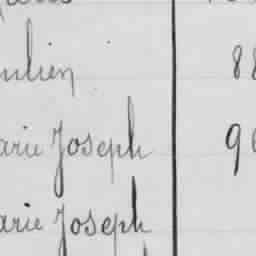 ulien 88
arie Joseph 9
arie Joseph